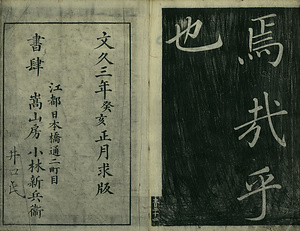 焉哉乎
也
文久三年癸亥正月求版
江都日本橋通二町目
書肆 嵩山房 小林新兵衛
井口氏